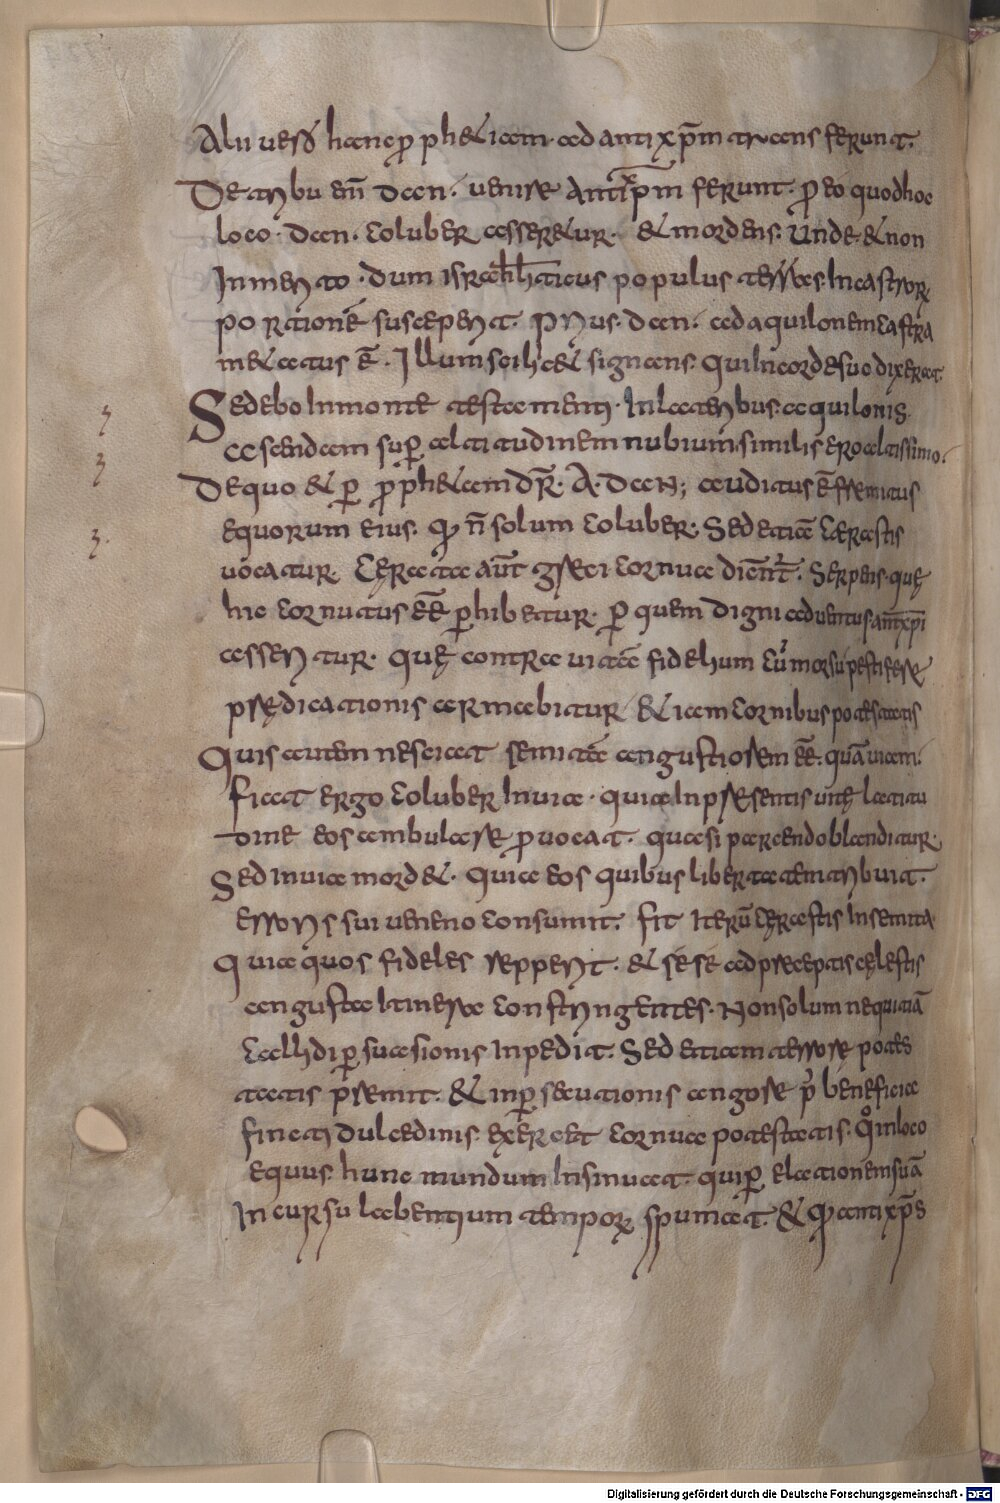 Alii uero hanc pro phetiam. ad antixp̄m trans ferunt.
De tribu eni̅ dan. uenire Antixp̄m ferunt. ꝓ eo quod hoc
loco. dan. coluber assere&ur. & mordens. Unde & non
Inmerito. dum israheliticus populus terras. In castror
po ratione suscepERIT. Primus. dan. ad aquilonem castra
m&atus ē. Illum scilic& signans. qui In corde suo dixerat.
Sedebo In monte testamenti. In lateribus. aquilonis
ascendam suꝑ altitudinem nubium. similis ero altissimo.
De quo & ꝑ ꝓph&am dr̄. A. dan; auditus ē fremitus
equorum eius. Qui n̄ solum coluber. Sed etiā cerastis
uocatur. Cęratae aut̄ greci cornua dicūt. Serpens. quę
hic cornutus ēē ꝑhibetur. ꝑ quem digni aduentus antixp̄i
asseritur. Quę contra uitam fidelium cū morsu pestiferę
prędicationis armabitur &iam cornibus potestatis
Quis autem nesciat semitā angustiorem ēē. quā uiam.
fiat ergo coluber In uia. quia In presentis uitę latitu
dine eos ambulare ꝓuocat. quasi parcendo blanditur.
Sed In uia mord&. Quia eos quibus libertatem tribuit.
erroris sui ueneno consumit. fit Iterū cęrastis In semita
Quia quos fideles repperit. & sese ad precepta cęlestis
angusta Itinera constringentes. Non solum nequitiā
callidi ꝑsuasionis Inpedit. Sed etiam terrorę potes
tatis premit. & in ꝑsecutionis angore p̄ beneficia
ficti dulcedinis. exercet cornua potestatis. Quo in loco
equus. hunc mundum Insinuat. qui ꝑ elationem suā
In cursu labentium temporum spumat. & quia antixp̄s
Digitalisierung gefördert durch die Deutsche Forschungsgemeinschaft - DFG